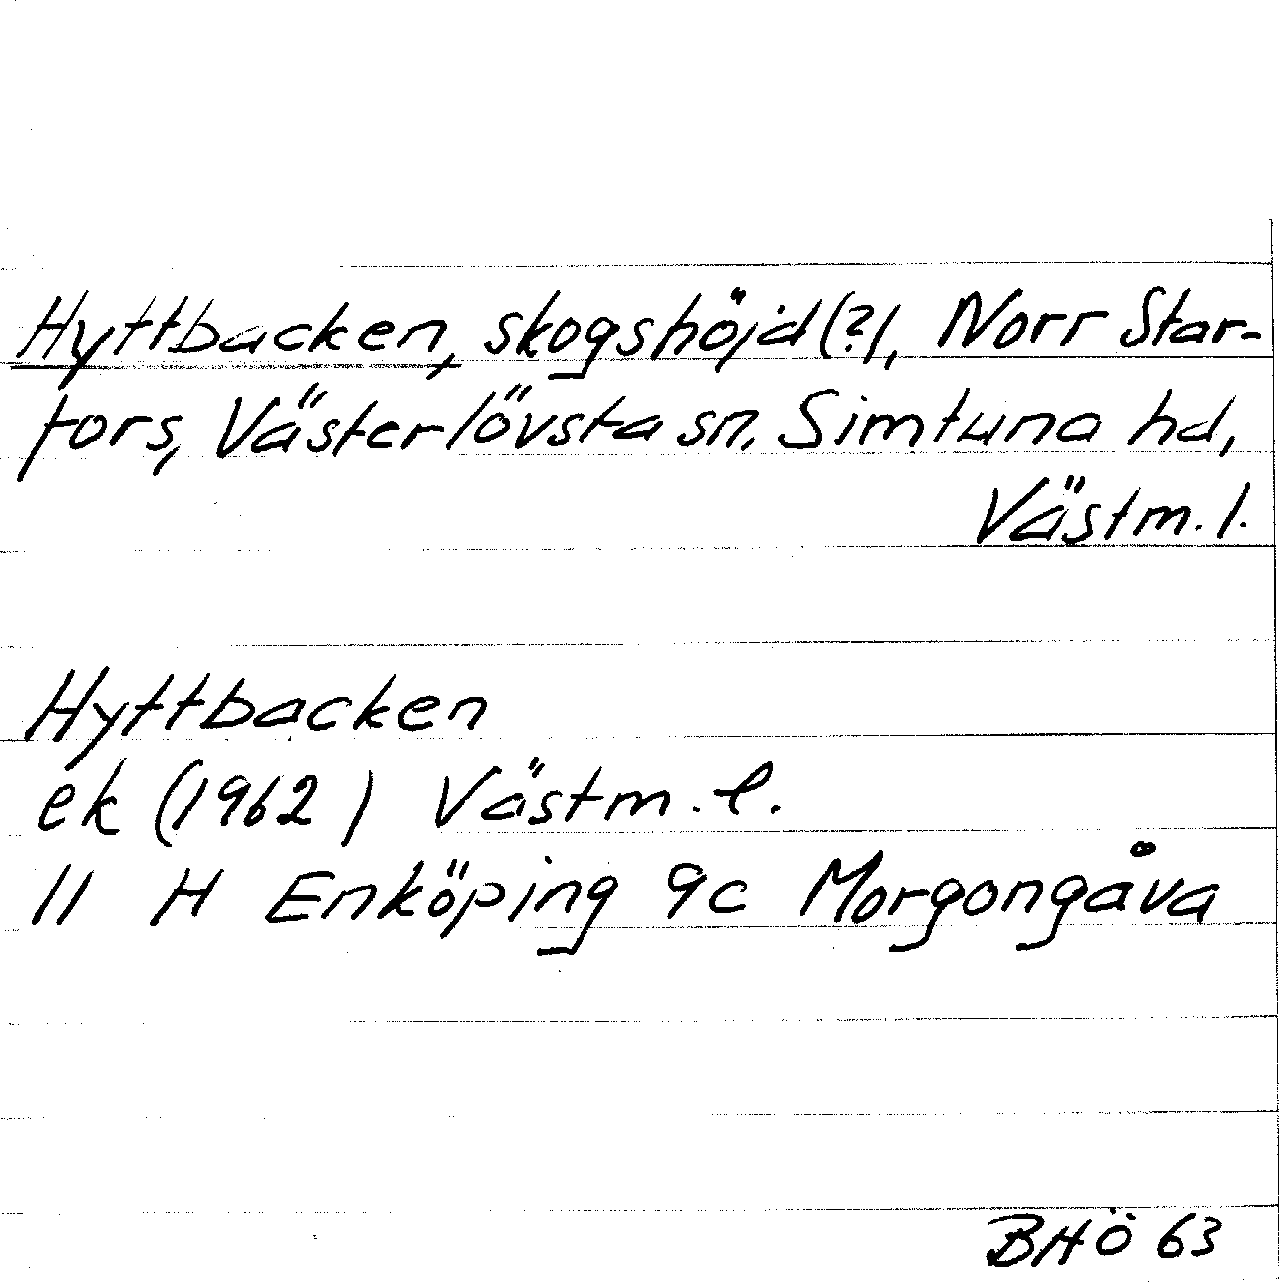 Hyttbacken, skogshöjd(?), Norr Star-
fors, Västerlövsta sn, Simtuna hd,
Västm. l.
Hyttbacken
ek (1962) Västm. l.
11 H Enköping 9c Morgongåva
BHÖ 63